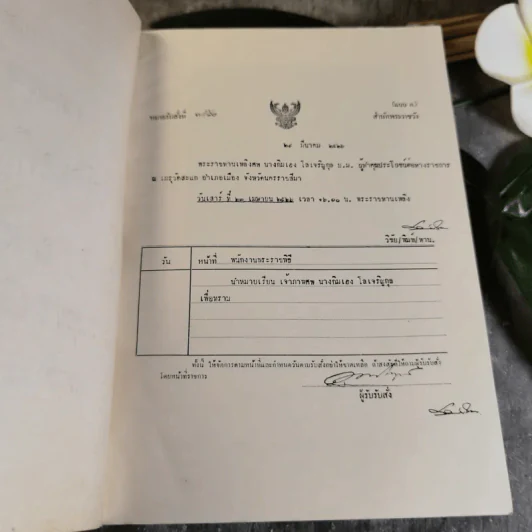 หมายรับสั่งที่
สำนักพระราชวัง
มีนาคม
พระราชทานเพลิงศพ นางกิมเฮง โลเจริญกุล ผู้ทำคุณประโยชน์ต่อทางราชการ
ณ เมรุวัดสะแก อำเภอเมือง จังหวัดนครราชสีมา
วันเสาร์ ที่ ๒๓ เมษายน เวลา น. พระราชทานเพลิง
วิชัย/พิมพ์/ทาน.
วัน
หน้าที่ พนักงานพระราชพิธี
นำหมายเรียน เจ้าภาพศพ นางกิมเฮง โลเจริญกุล
เพื่อทราบ
ทั้งนี้ ให้จัดการตามหน้าที่และกำหนดวันตามรับสั่งอย่าให้ขาดเหลือ ถ้าสงสัยก็ให้ถามผู้รับรับสั่ง
โดยหน้าที่ราชการ
ผู้รับรับสั่ง